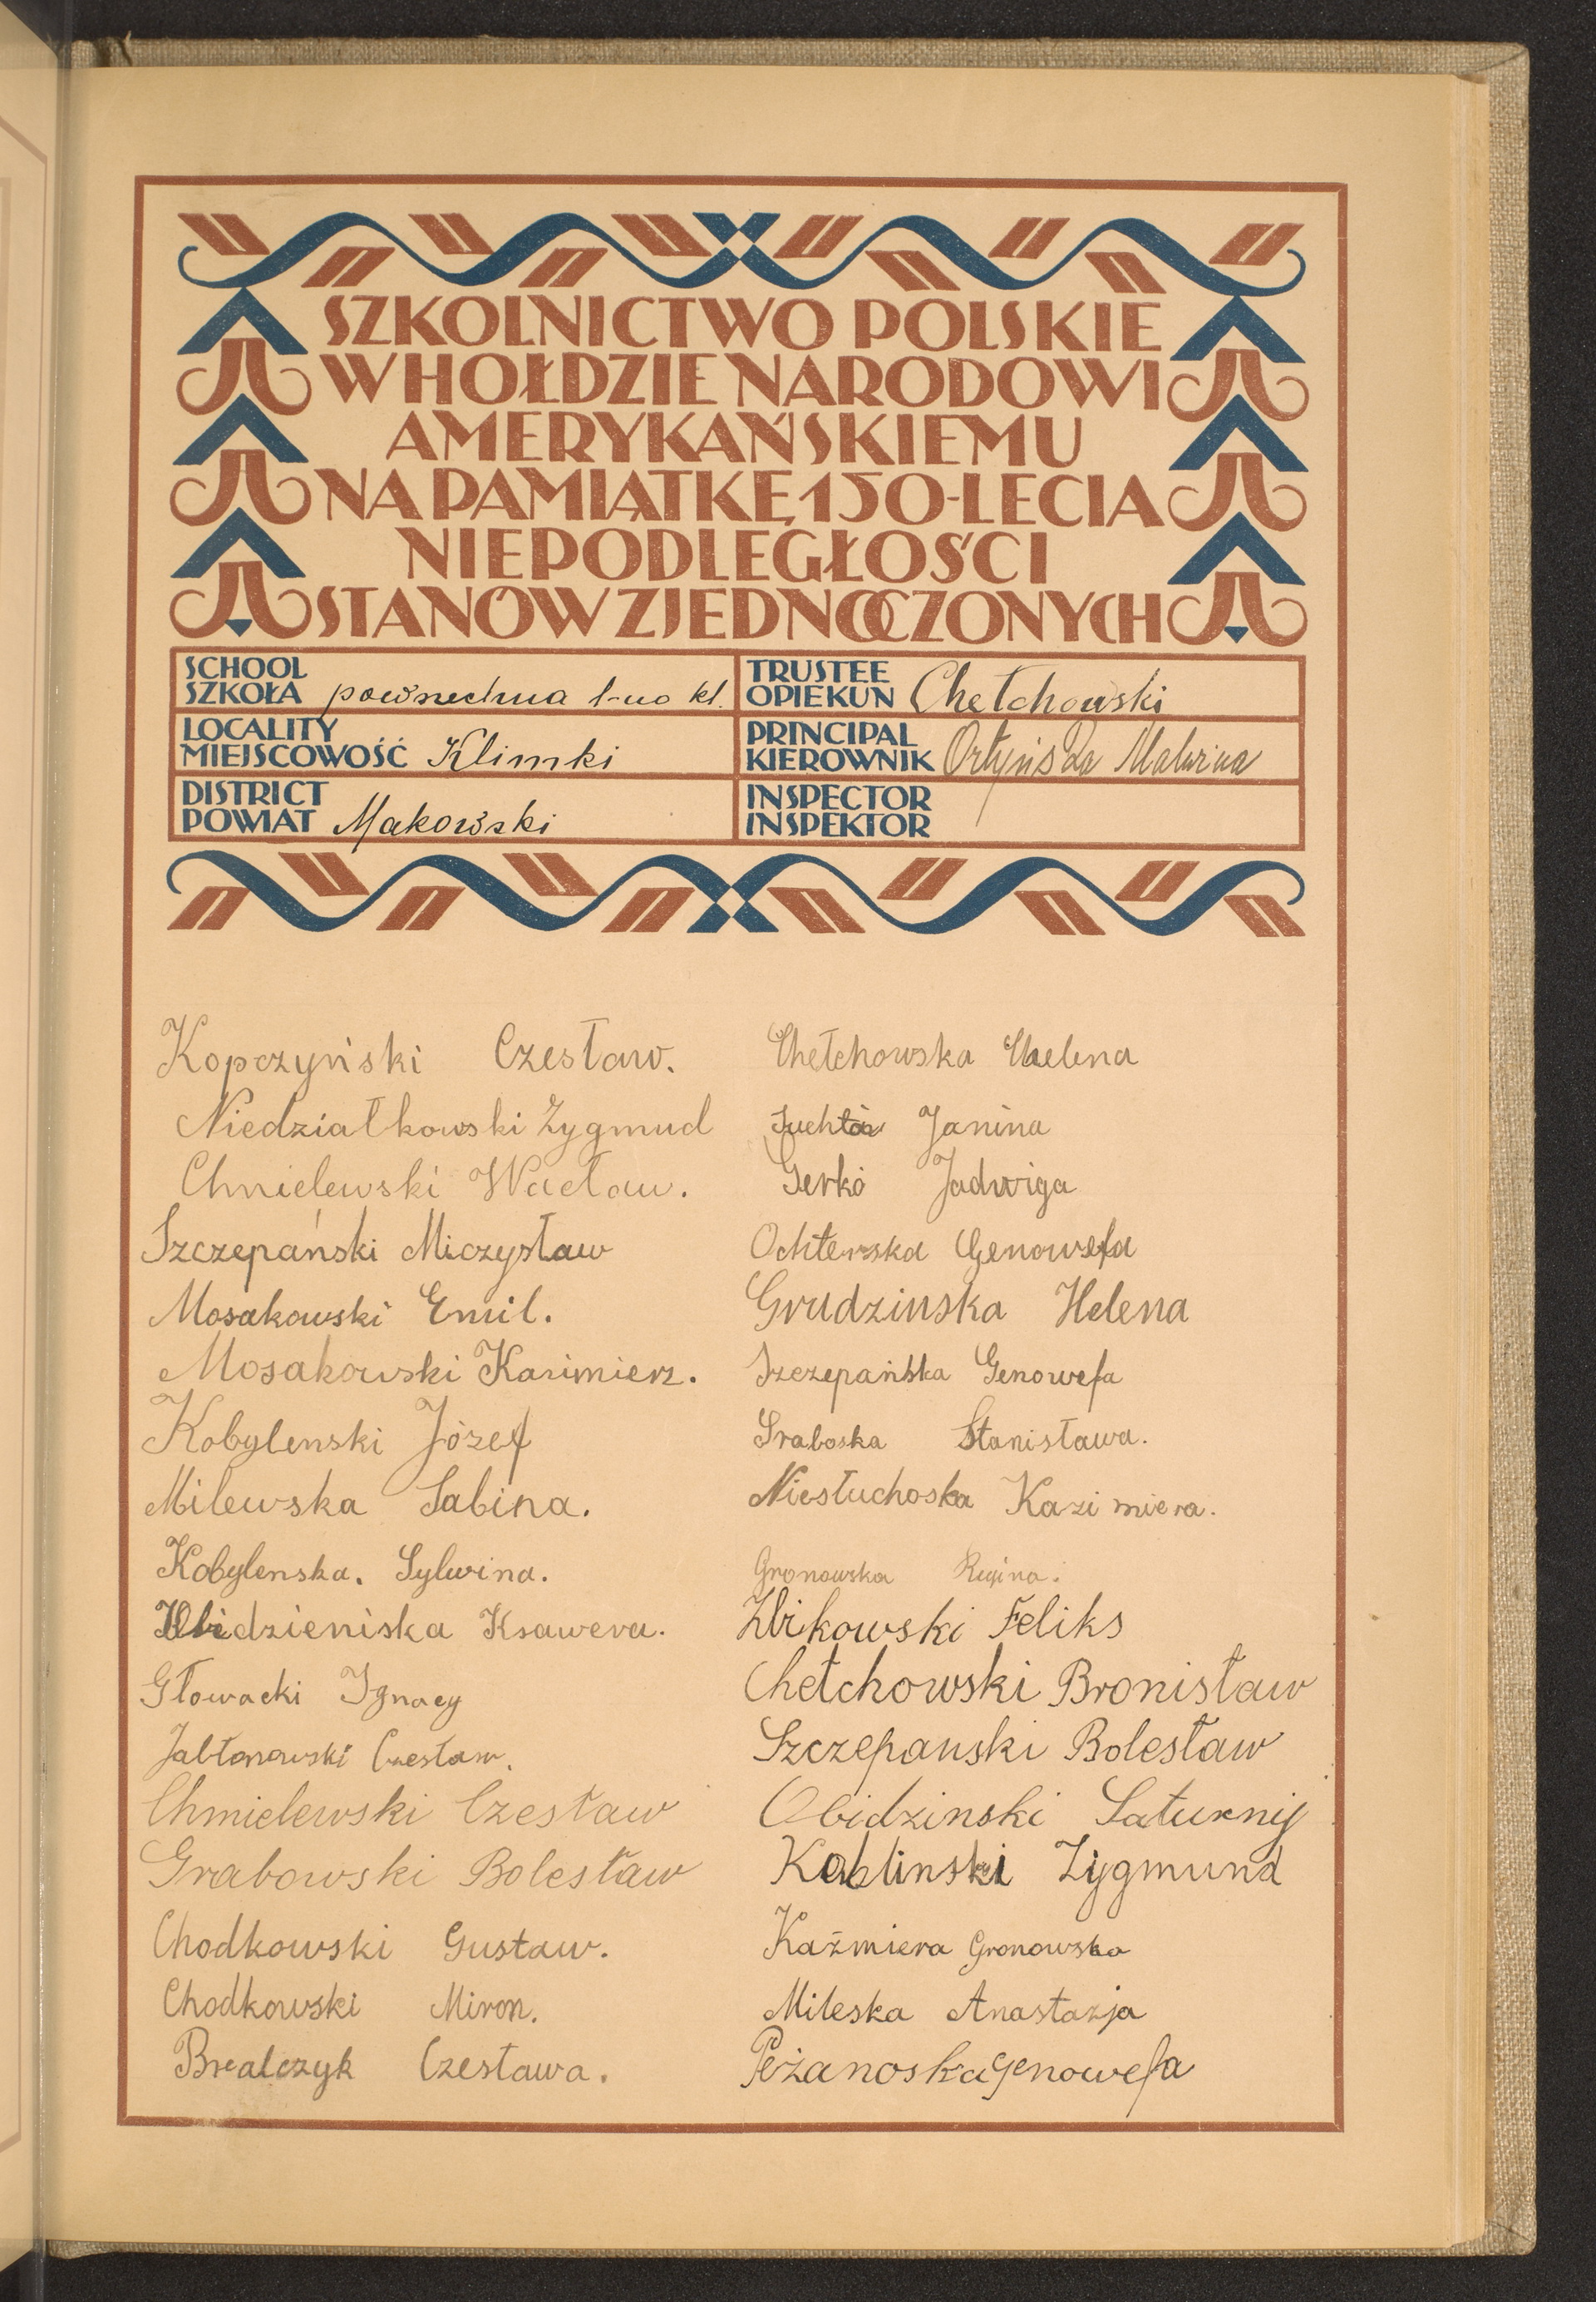 SZKOLNICTWO POLSKIE
W HOŁDZIE NARODOWI
AMERYKAŃSKIEMU
NA PAMIĄTKĘ 150-LECIA
NIEPODLEGŁOŚCI
STANÓW ZJEDNOCZONYCH
SCHOOL
SZKOŁA powszechna 1-no kl.
LOCALITY
MIEJSCOWOŚĆ Klimki
DISTRICT
POWIAT Makowski
TRUSTEE
OPIEKUN Chełchowski
PRINCIPAL
KIEROWNIK Ortyńska Malwina
INSPECTOR
INSPEKTOR
Kopczyński Czesław.
Niedziałkowski Zygmud
Chmielewski Wacław.
Szczepański Miczysław
Mosakowski Emil.
Mosakowski Kazimierz.
Kobylenski Józef
Milewska Sabina.
Kobylenska. Sylwina.
Obidzieniska Ksawera.
Głowacki Ignacy
Jabłonowski Czesław.
Chmielewski Czesław
Grabowski Bolesław
Chodkowski Gustaw.
Chodkowski Miron.
Bralczyk Czesława.
Chełchowska Helena
Suchta Janina
Gerko Jadwiga
Ochterska Genowefa
Grudzinska Helena
Szczepańska Genowefa
Graboska Stanisława.
Niesłuchoska Kazimiera.
Gronowska Regina.
Zbikowski Feliks
Chełchowski Bronisław
Szczepanski Bolesław
Obidzinski Saturnij
Kablinski Zygmund
Kaźmiera Gronowska
Mileska Anastazja
Peżanoska Genowefa